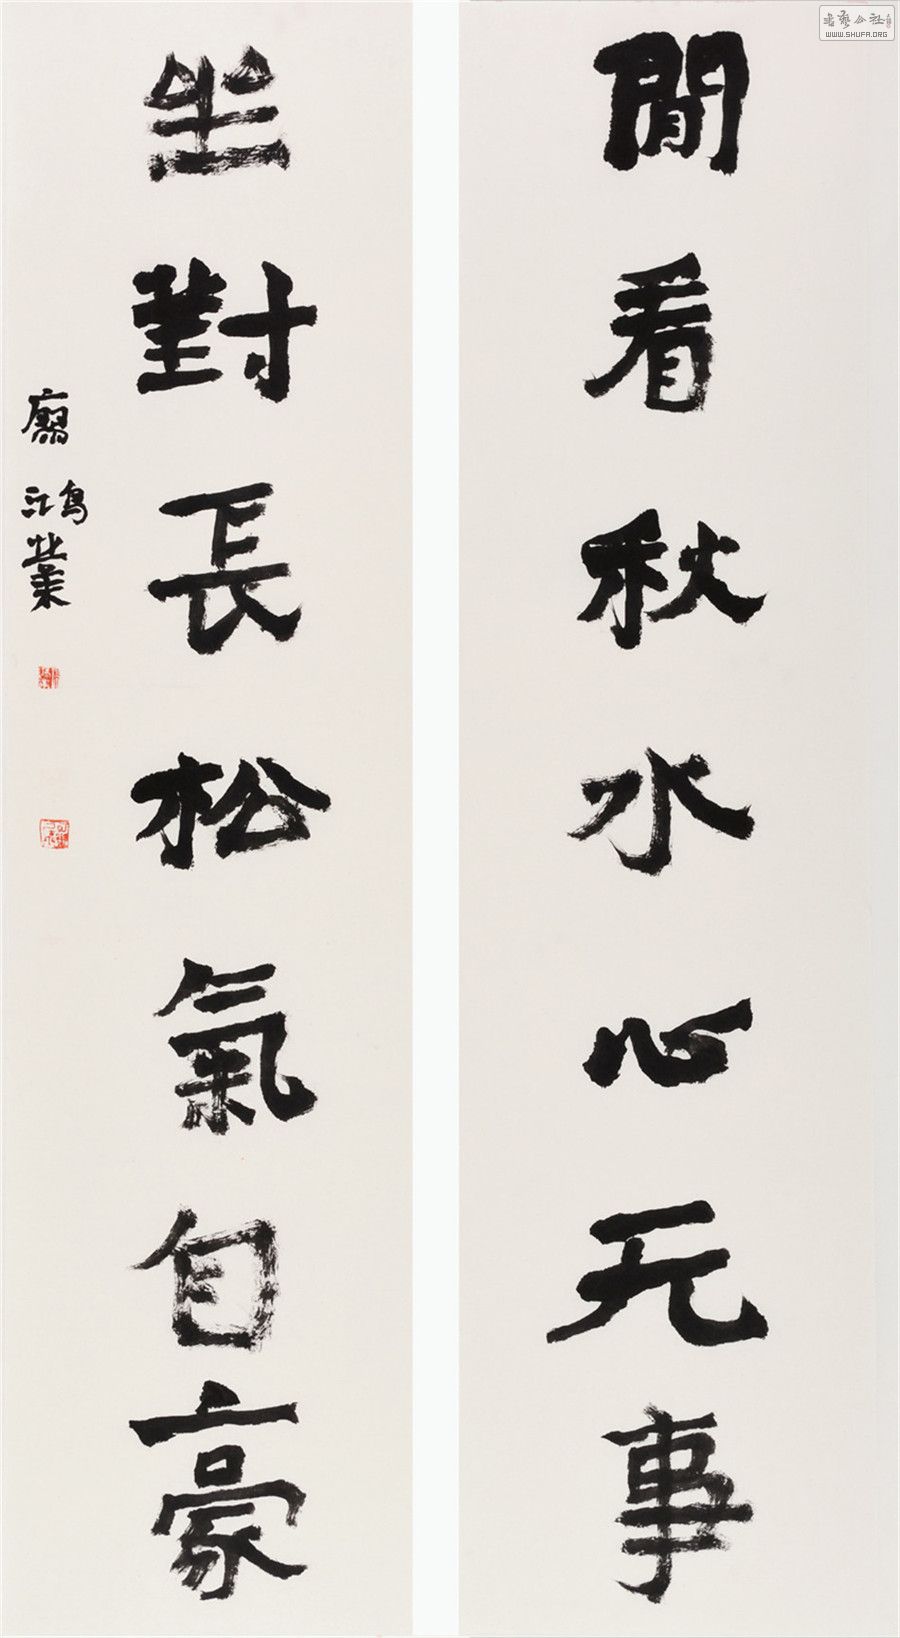 閒看秋水心无事
坐對長松氣自豪
廖鴻業
書藝公社
WWW.SHUFA.ORG